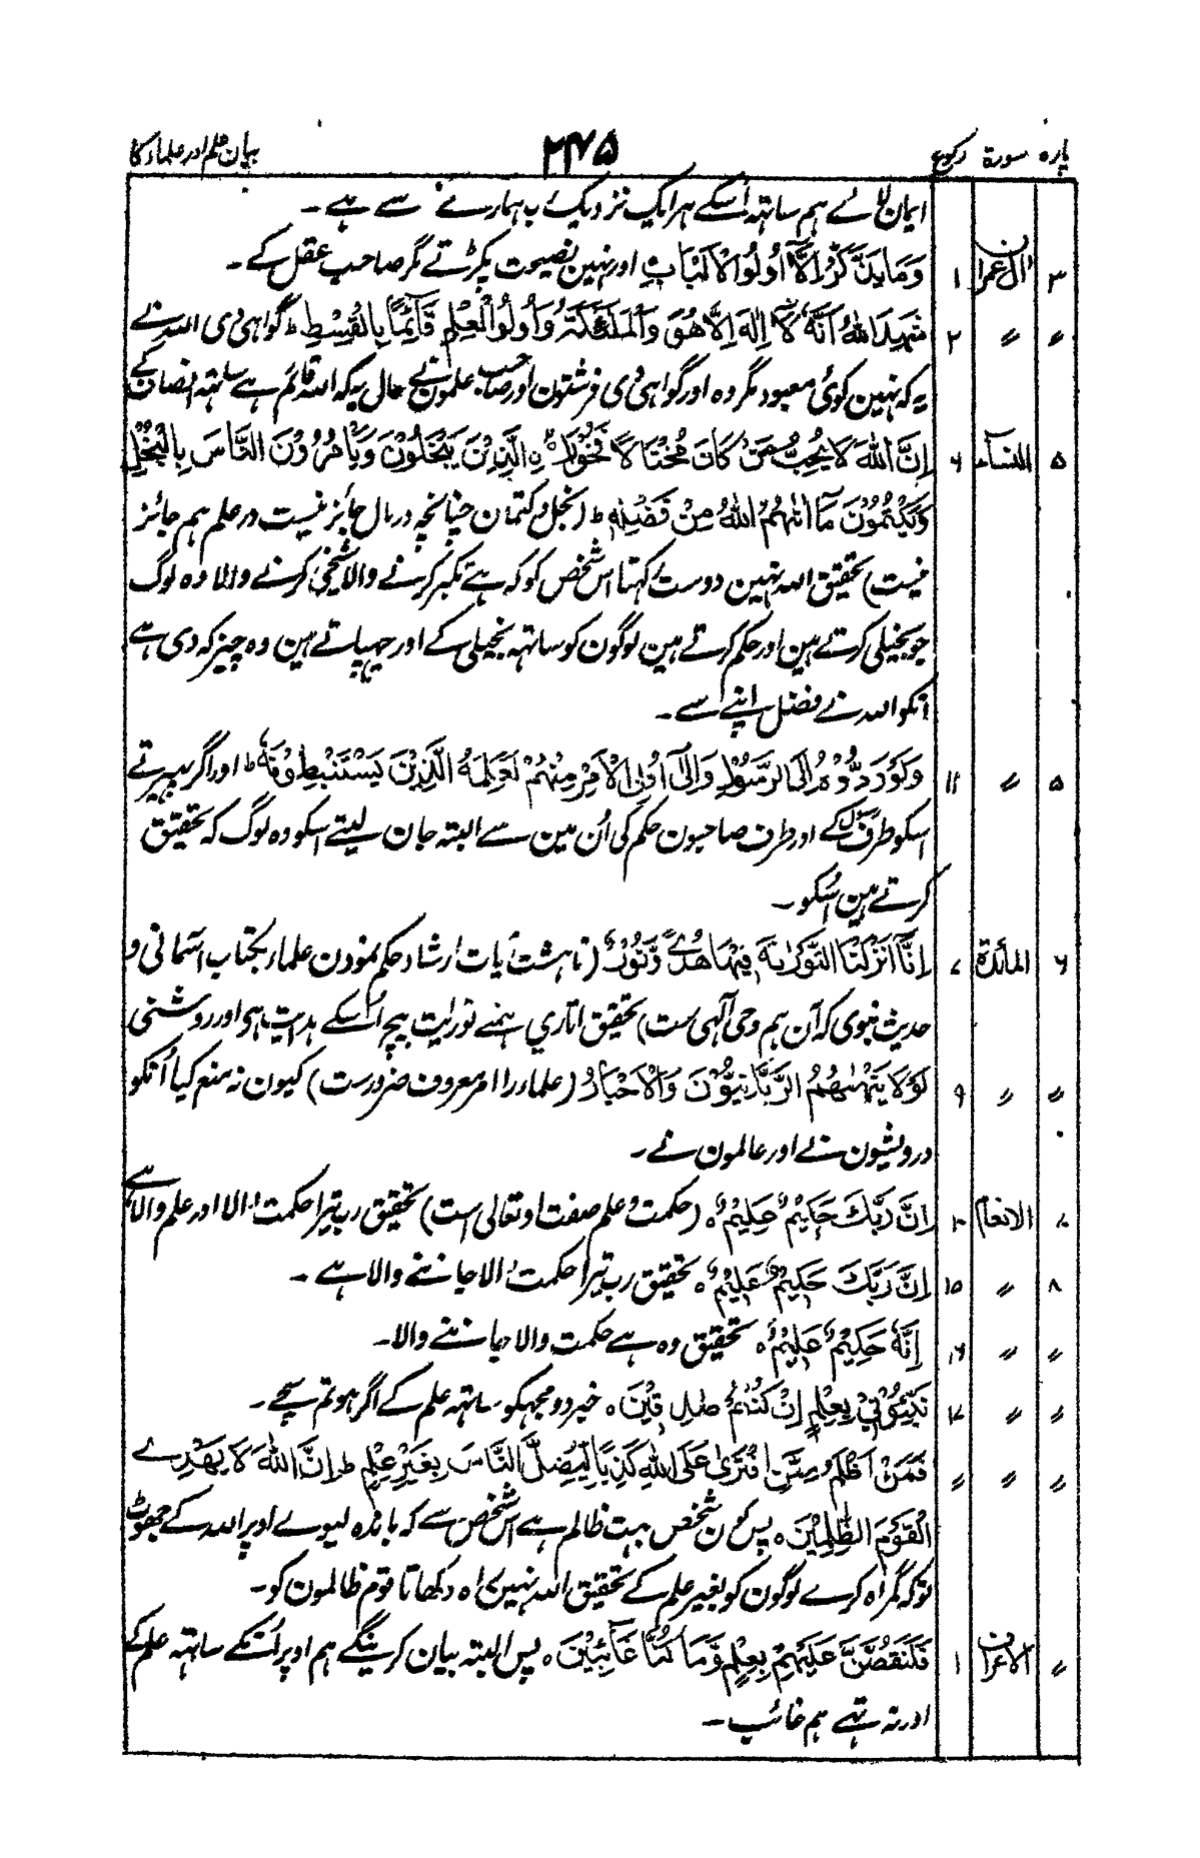 پارہ سورۃ رکوع ۲۷۵ بیان علم اور علماء کا
ایمان لائے ہم ساتھ اُسکے ہر ایک نزدیک رب ہمارے سے ہے ۔
۳ آل عمران ۱ وَمَا يَذَّكَّرُ اِلَّآ اُولُوا الْاَلْبَابِ اور نہین نصیحت پکڑتے مگر صاحب عقل کے ۔
〃 〃 ۲ شَهِدَ اللهُ اَنَّهٗ لَآ اِلٰهَ اِلَّا هُوَ وَالْمَلٰٓئِكَةُ وَاُولُوا الْعِلْمِ قَآئِمًا بِالْقِسْطِ ط گواہی دی اللہ نے
یہ کہ نہین کوئی معبود مگر وہ اور گواہی دی فرشتون اور صاحب علمون نے حال یہ کہ اللہ قائم ہے ساتھ انصاف کے
۵ النساء ۶ اِنَّ اللهَ لَا يُحِبُّ مَنْ كَانَ مُخْتَالًا فَخُوْرًا ہ الَّذِيْنَ يَبْخَلُوْنَ وَيَاْمُرُوْنَ النَّاسَ بِالْبُخْلِ
وَيَكْتُمُوْنَ مَآ اٰتٰهُمُ اللهُ مِنْ فَضْلِهٖ ط (بخل و کتمان چنانچہ در مال جائز نیست در علم ہم جائز
نیست) تحقیق اللہ نہین دوست رکہتا اس شخص کو کہ ہے تکبر کرنے والا شیخی کرنے والا وہ لوگ
جو بخیلی کرتے ہین اور حکم کرتے ہین لوگون کو ساتھ بخیلی کے اور چہپاتے ہین وہ چیز کہ دی ہے
انکو اللہ نے فضل اپنے سے ۔
۵ 〃 ۱۱ وَلَوْ رَدُّوْهُ اِلَى الرَّسُوْلِ وَاِلٰٓى اُولِى الْاَمْرِ مِنْهُمْ لَعَلِمَهُ الَّذِيْنَ يَسْتَنْبِطُوْنَهٗ ط اور اگر پہیرتے
اسکو طرف رسول کے اور طرف صاحبون حکم کی اُن مین سے البتہ جان لیتے اسکو وہ لوگ کہ تحقیق
کرتے ہین اُسکو ۔
۶ المائدۃ ۷ اِنَّآ اَنْزَلْنَا التَّوْرٰىةَ فِيْهَا هُدًى وَّنُوْرٌ (تا ہشت آیات ارشاد حکم نمودن علماء بکتاب آسمانی و
حدیث نبوی کہ آن ہم وحی آلہی ست) تحقیق اتاری ہمنے توریت بیچ اُسکے ہدایت ہی اور روشنی
〃 〃 ۹ لَوْلَا يَنْهٰىهُمُ الرَّبَّانِيُّوْنَ وَالْاَحْبَارُ (علماء را امر معروف ضرورست) کیون نہ منع کیا اُنکو
درویشون نے اور عالمون نے ۔
۷ الانعام ۱۰ اِنَّ رَبَّكَ حَكِيْمٌ عَلِيْمٌ ہ (حکمت و علم صفت او تعالی است) تحقیق رب تیرا حکمت والا اور علم والا ہے
۸ 〃 ۱۵ اِنَّ رَبَّكَ حَكِيْمٌ عَلِيْمٌ ہ تحقیق رب تیرا حکمت والا جاننے والا ہے ۔
〃 〃 ۱۶ اِنَّهٗ حَكِيْمٌ عَلِيْمٌ ہ تحقیق وہ ہے حکمت والا جاننے والا۔
〃 〃 ۱۷ نَبِّئُوْنِيْ بِعِلْمٍ اِنْ كُنْتُمْ صٰدِقِيْنَ ہ خبر دو مجہکو ساتھ علم کے اگر ہو تم سچے ۔
〃 〃 〃 فَمَنْ اَظْلَمُ مِمَّنِ افْتَرٰى عَلَى اللهِ كَذِبًا لِّيُضِلَّ النَّاسَ بِغَيْرِ عِلْمٍ ط اِنَّ اللهَ لَا يَهْدِے
الْقَوْمَ الظّٰلِمِيْنَ ہ پس کون شخص بہت ظالم ہے اس شخص سے کہ باندہ لیوے اوپر اللہ کے جھوٹ
توکہ گمراہ کرے لوگون کو بغیر علم کے تحقیق اللہ نہین راہ دکھاتا قوم ظالمون کو ۔
〃 الاعراف ۱ فَلَنَقُصَّنَّ عَلَيْهِمْ بِعِلْمٍ وَّمَا كُنَّا غَآئِبِيْنَ ہ پس البتہ بیان کرینگے ہم اوپر اُنکے ساتھ علم کے
اور نہ تہے ہم غائب ۔